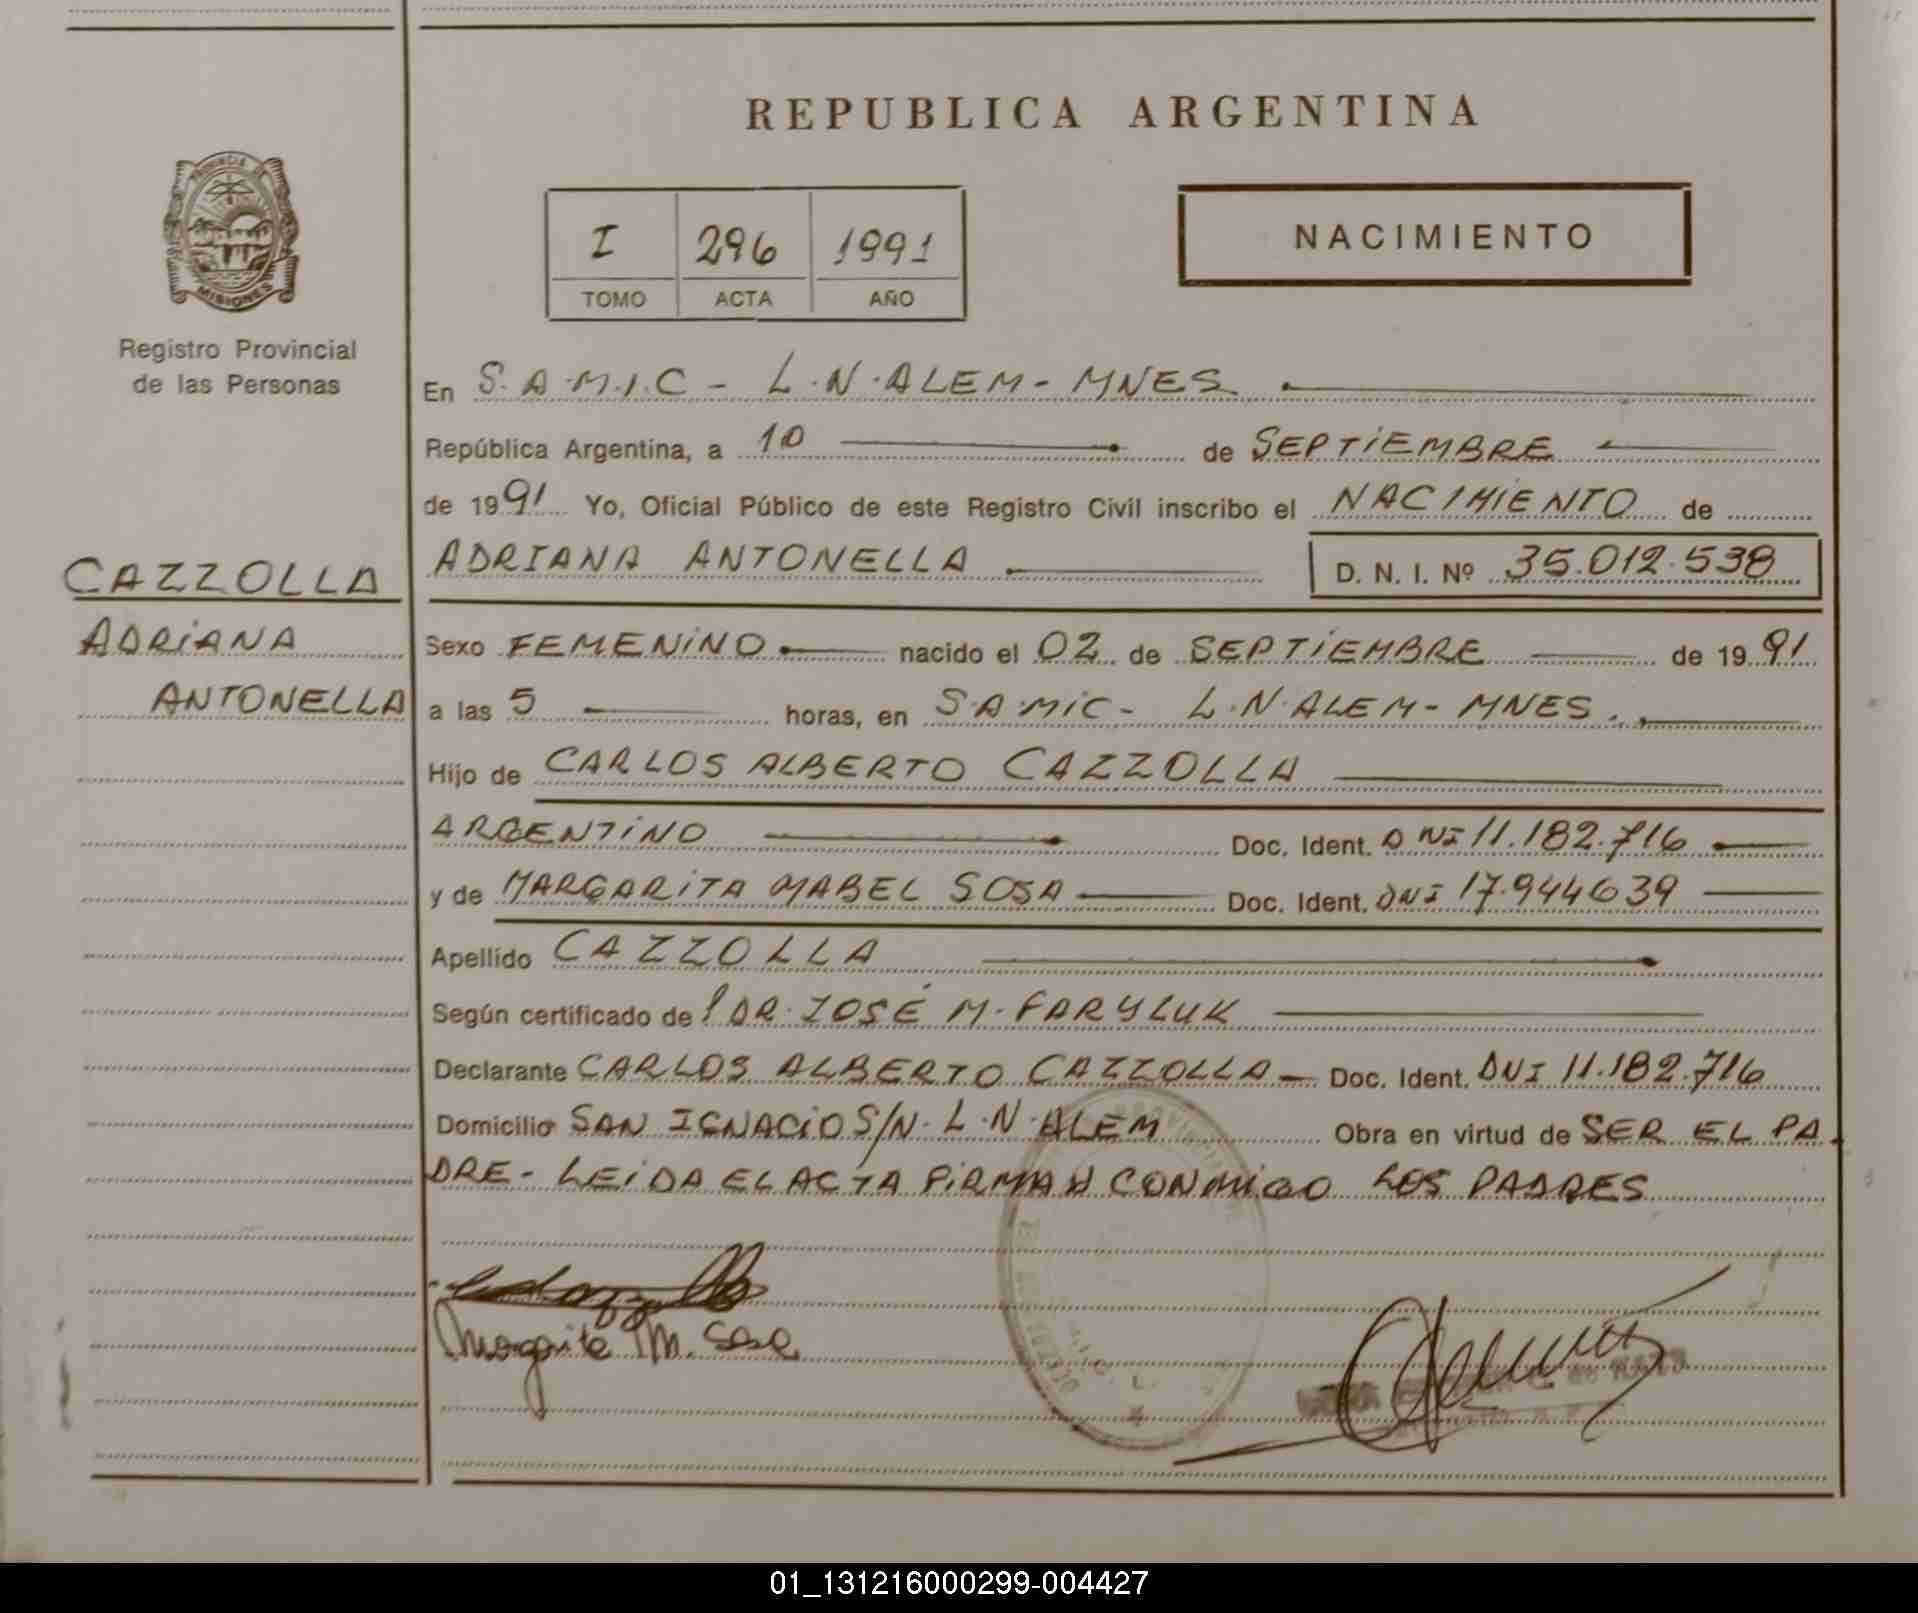 REPUBLICA ARGENTINA
PROVINCIA DE
MISIONES
Registro Provincial
de las Personas
I 296 1991
TOMO ACTA AÑO
NACIMIENTO
En S.A.M.I.C - L.N.ALEM - MNES
República Argentina, a 10 de SEPTIEMBRE
de 1991 Yo, Oficial Público de este Registro Civil inscribo el NACIMIENTO de
CAZZOLLA
ADRIANA ANTONELLA D. N. I. Nº 35.012.538
ADRIANA
Sexo FEMENINO nacido el 02 de SEPTIEMBRE de 1991
ANTONELLA
a las 5 horas, en S.A.MIC - L.N.ALEM - MNES.
Hijo de CARLOS ALBERTO CAZZOLLA
ARGENTINO Doc. Ident. DNI 11.182.716
y de MARGARITA MABEL SOSA Doc. Ident. DNI 17.944639
Apellido CAZZOLLA
Según certificado de DR. JOSÉ M. FARYLUK
Declarante CARLOS ALBERTO CAZZOLLA - Doc. Ident. DNI 11.182.716
Domicilio SAN IGNACIO S/N. L.N.ALEM Obra en virtud de SER EL PA-
DRE - LEIDA EL ACTA FIRMAN CONMIGO LOS PADRES
Margarita M. Sosa
01_131216000299-004427